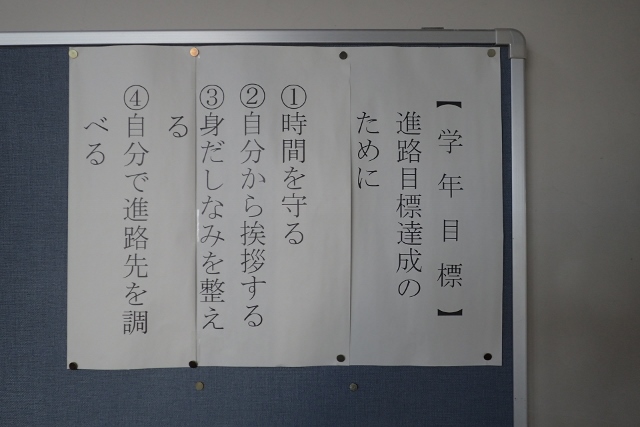 【学年目標】
進路目標達成の
ために
①時間を守る
②自分から挨拶する
③身だしなみを整え
る
④自分で進路先を調
べる